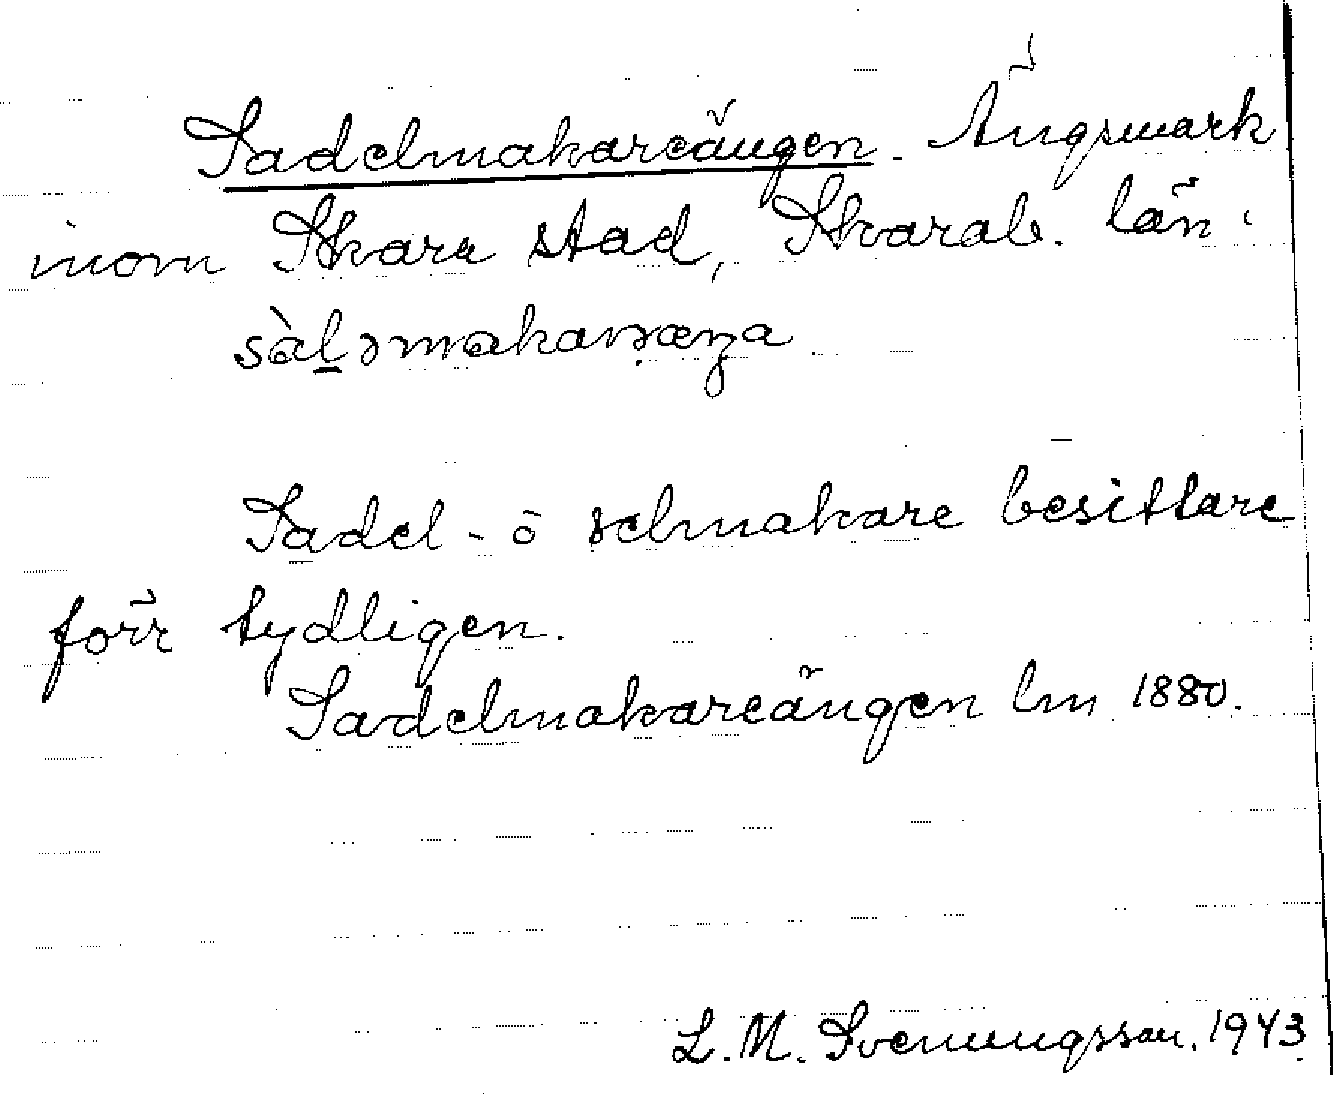 Sadelmakareängen. Ängsmark
inom Skara stad, Skarab. län.
sàləmakaræŋa
Sadel- o selmakare besittare
förr tydligen.
Sadelmakareängen lm 1880.
L. M. Svenungsson. 1943